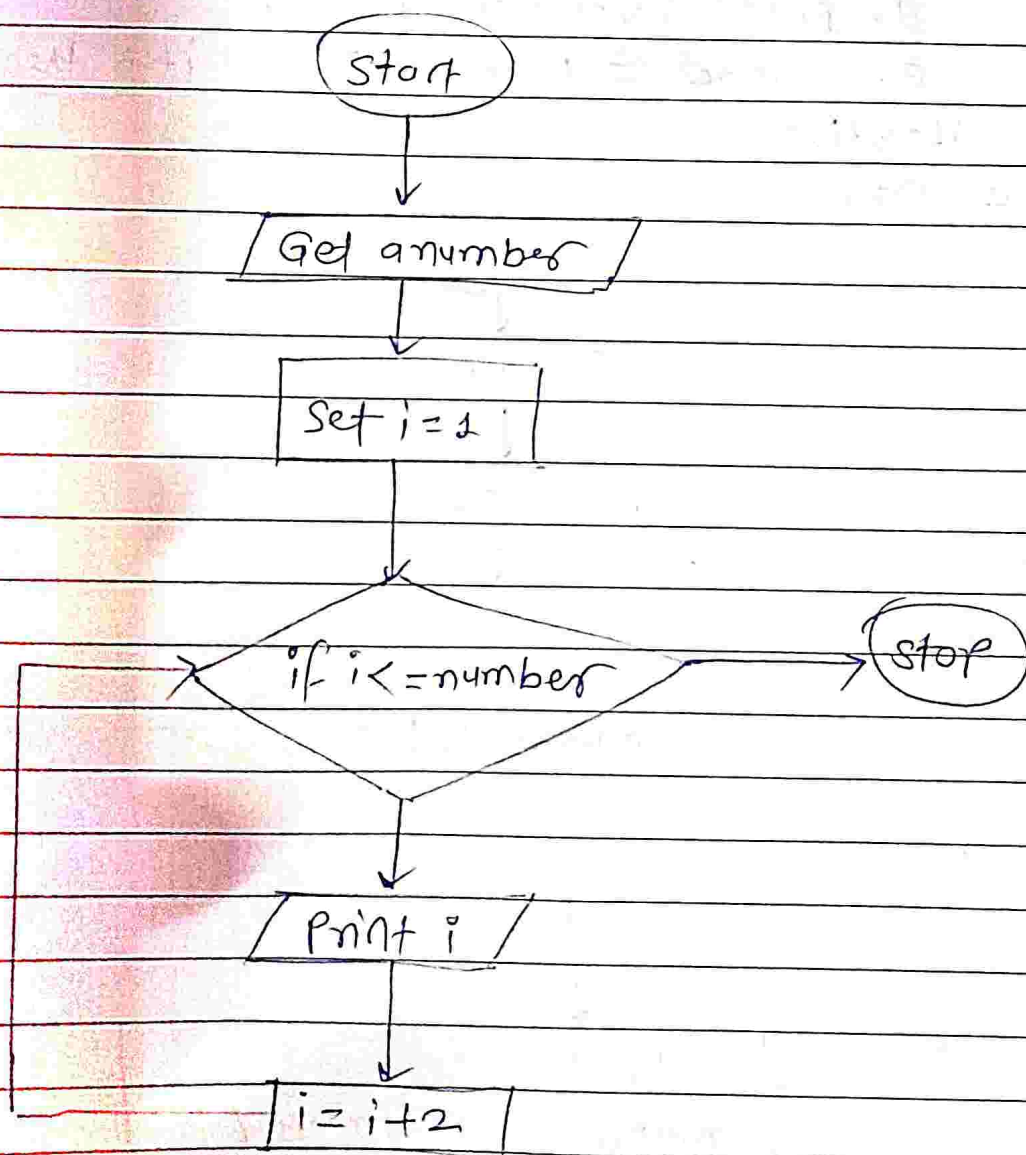 Start
Get a number
Set i = 1
if i <= number
Stop
Print i
i = i + 2